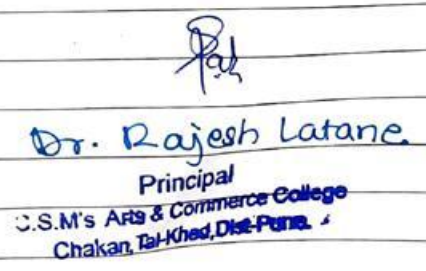 Dr. Rajesh Latane.
Principal
C.S.M's Arts & Commerce College
Chakan, Tal-Khed, Dist-Pune.